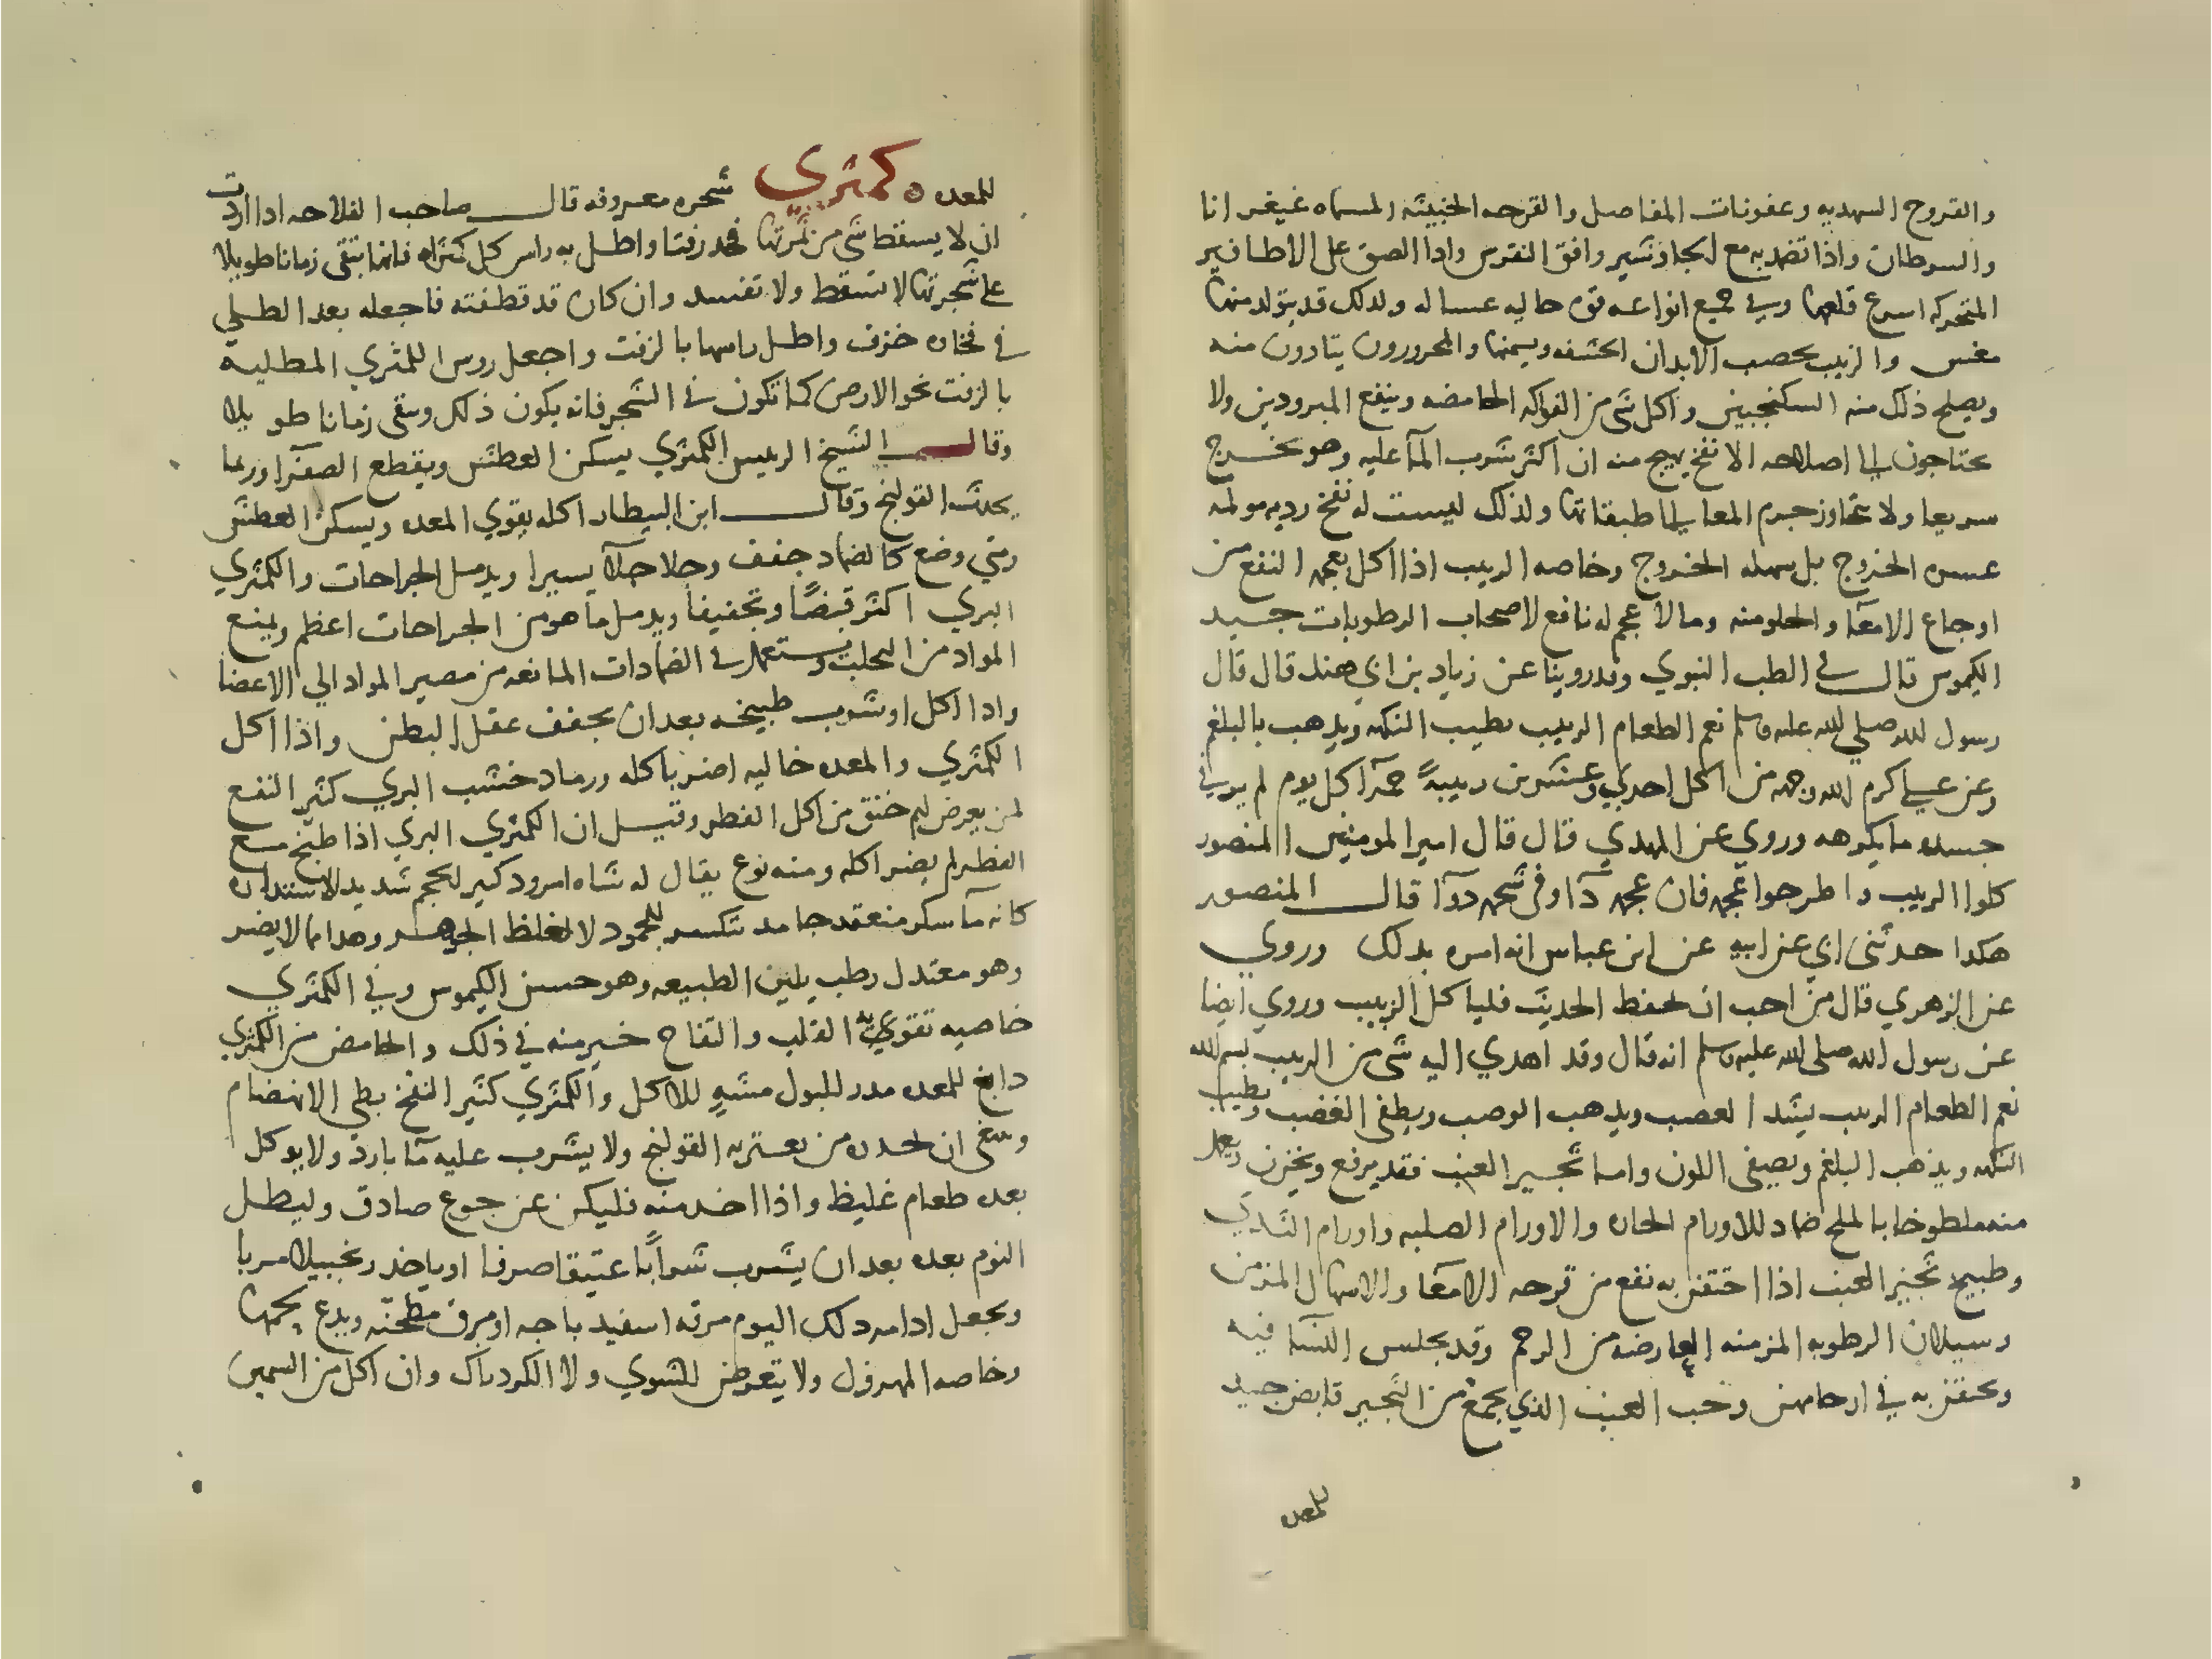 والقروح الشهديه وعفونات المفاصل والقرحه الخبيثه المسماه غنغرانا
والسرطان واذا تضمد به مع الجاوشير وافق النقرس واذا الصق على الاظافير
المتحركه اسرع قلعها وفي جميع انواعه قوه جاليه غساله ولذلك قد يتولد منها
مغس والزبيب يخصب الابدان الكشفه ويسمنها والمحرورون يتادون منه
ويصلح ذلك منه السكنجبين واكل شي من الفواكه الحامضه وينفع المبرودين ولا
يحتاجون الى اصلاحه الا نفخ يهيج منه ان اكثر شرب المآ عليه وهو يخرج
سريعا ولا يتجاوز جرم المعا الى طبقاتها ولذلك ليست له نفخ رديه مولمه
عسره الخروج بل سهله الخروج وخاصه الزبيب اذا اكل بعجمه النفع من
اوجاع الامعآ والحلو منه وما لا عجم له نافع لاصحاب الرطوبات جيد
الكيموس قال في الطب النبوي وقد روينا عن زياد بن ابي هند قال قال
رسول الله صلى الله عليه وسلم نعم الطعام الزبيب يطيب النكهه ويذهب بالبلغم
وعن علي كرم الله وجهه من اكل احدي وعشرين زبيبةً حمرآ كل يوم لم ير في
جسده ما يكرهه وروي عن المهدي قال قال امير المومنين المنصور
كلوا الزبيب واطرحوا عجمه فان عجمه دآ وفي شحمه دوآ قال المنصور
هكذا حدثني ابي عن ابيه عن ابن عباس انه امره بذلك وروي
عن الزهري قال من احب ان يحفظ الحديث فلياكل الزبيب وروي ايضا
عن رسول الله صلى الله عليه وسلم انه قال وقد اهدي اليه شي من الزبيب بسم الله
نعم الطعام الزبيب يشد العصب ويذهب الوصب ويطفى الغضب ويطيب
النكهه ويذهب البلغم ويصفى اللون واما ثجير العنب فقد يرفع ويخزن ويعمل
منه ملطوخا بالملح ضماد للاورام الحاره والاورام الصلبه واورام الثدي
وطبيخ ثجير العنب اذا احتقن به نفع من قرحه الامعآ والاسهال المزمن
وسيلان الرطوبه المزمنه العارضه من الرحم وقد يجلس النسآ فيه
ويحتقن به في ارحامهن وحب العنب الذي يجمع من الثجير قابض جيد
للمعده
للمعده ۞ كمثري شجره معروفه قال صاحب الفلاحه اذا اردت
ان لا يسقط شي من ثمرتها فخد زفتا واطل به راس كل كمثراه فانها تبقى زمانا طويلا
على شجرتها لا تسقط ولا تفسد وان كان قد قطفته فاجعله بعد الطلي
في فخاره خزف واطل راسها بالزفت واجعل روس الكمثري المطليه
بالزفت نحو الارض كما تكون في الشجر فانه يكون ذلك ويبقى زمانا طويلا
وقال الشيخ الرييس الكمثري يسكن العطش ويقطع الصفرآ وربما
يحدث القولنج وقال ابن البيطار اكله يقوي المعده ويسكن العطش
ومتي وضع كالضماد جفف وجلا جلآ يسيرا ويدمل الجراحات والكمثري
البري اكثر قبضًا وتجفيفا ويدمل ما هو من الجراحات اعظم ويمنع
المواد من التحلب ويستعمل في الضمادات المانعه من مصير المواد الي الاعضا
واذا اكل او شرب طبيخه بعد ان يجفف عقل البطن واذا اكل
الكمثري والمعده خاليه اضر باكله ورماد خشب البري كثير النفع
لمن يعرض لهم خنق من اكل الفطر وقيل ان الكمثري البري اذا طبخ مع
الفطر لم يضر اكله ومنه نوع يقال له شاه امرود كبير الحجم شديد الاستداره
كانه مآ سكر منعقد جامد تنكسر للجمود لا لغلظ الجوهر وهذا مما لا يضر
وهو معتدل رطب يلين الطبيعه وهو حسن الكيموس وفي الكمثري
خاصيه تقوي القلب والتفاح خير منه في ذلك والحامض من الكمثري
دابغ للمعده مدر للبول مشهٍ للاكل والكمثري كثير النفخ بطي الانهضام
وينبغى ان يحذره من يعتريه القولنج ولا يشرب عليه مآ بارد ولا يوكل
بعده طعام غليظ واذا اخد منه فليكن عن جوع صادق وليطل
النوم بعده بعد ان يشرب شرابًا عتيقا صرفا او ياخد زنجبيلا مربا
ويجعل ادامه دلك اليوم مرقه اسفيد باجه او مرق مطجنه ويدع لحمها
وخاصه المهزول ولا يتعرض للشوي ولا الكردناك وان اكل من السمين